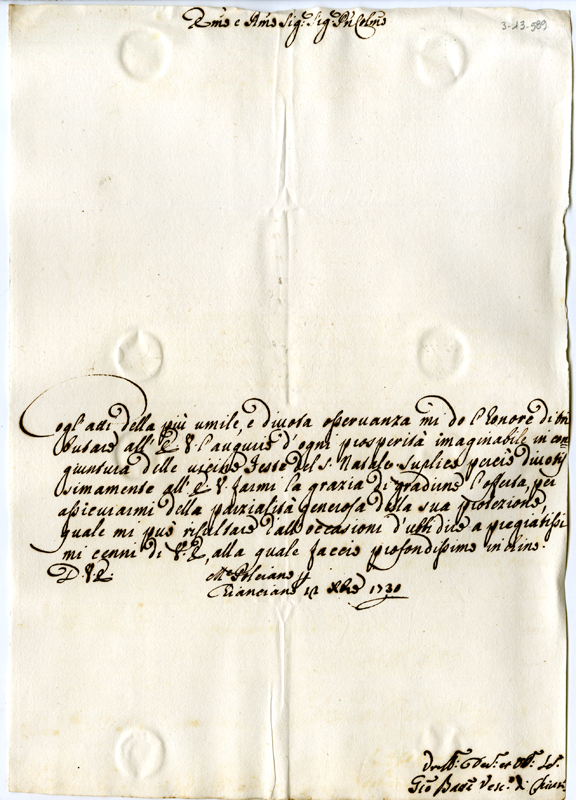 Emo e Rmo Sig:r Sig:r Pne Colmo
3-13-589
Cogl'atti della più umile, e divota osservanza mi do l'honore di tri
butare all'E. V. l'augurio d'ogni prosperità imaginabile in con
giuntura delle vicine Feste del S. Natale. Suplico perciò divotis
simamente all'E. V. farmi la grazia di gradirne l'offerta, per
assicurarmi della parzialità generosa della sua protezione,
quale mi può risultare dall'occasioni d'ubbidire a pregiatissi
mi cenni di V. E., alla quale faccio profondissimo inchino.
D. V. E.
Mte Pulciano
Chianciano 12 Xbre 1730
Gio: Batta Vesc.o di Chiusi